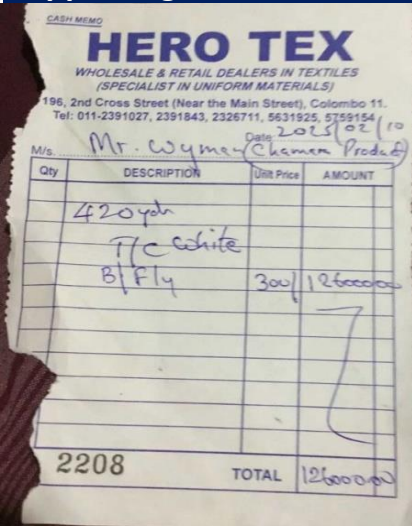 CASH MEMO
HERO TEX
WHOLESALE & RETAIL DEALERS IN TEXTILES
(SPECIALIST IN UNIFORM MATERIALS)
196, 2nd Cross Street (Near the Main Street), Colombo 11.
Tel: 011-2391027, 2391843, 2326711, 5631925, 5759154
Date 2025/02/10
M/s. Mr. Wyman (Chamara
Qty DESCRIPTION Unit Price AMOUNT
420 yds
T/C White
B/Fly 300/ 126000.00
2208 TOTAL 126000.00